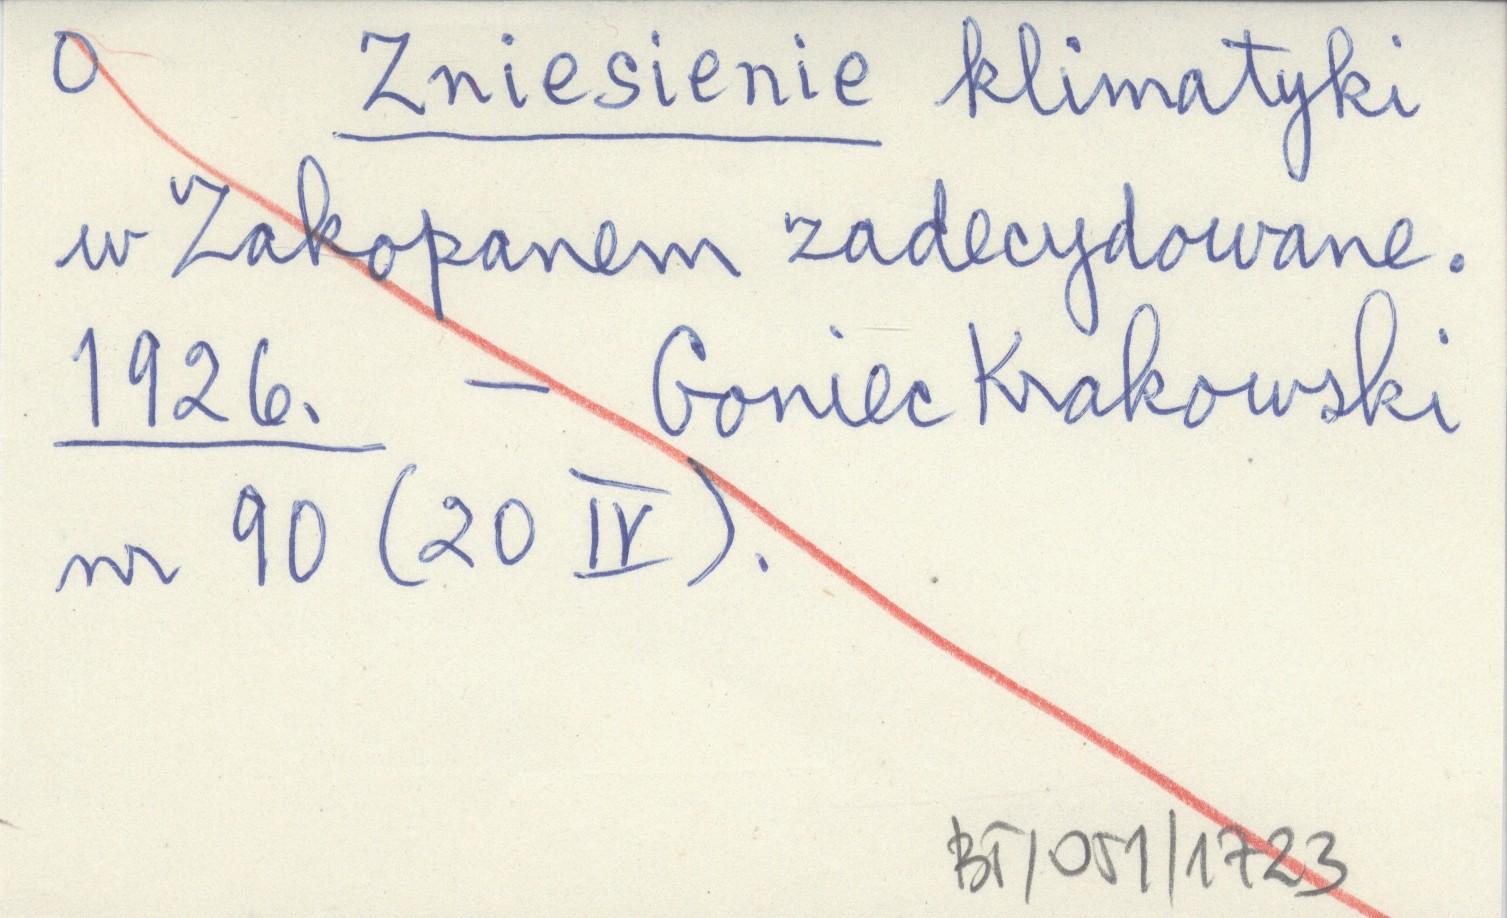 O Zniesienie klimatyki
w Zakopanem zadecydowane.
1926. — Goniec Krakowski
nr 90 (20 IV).
BT/051/1723